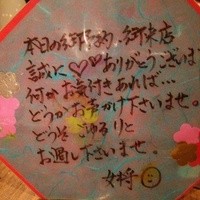 本日の御予約、御来店
誠に♡ありがとうございます
何かお気付きあれば…
どうかお声かけ下さいませ。
どうぞごゆるりと
お過し下さいませ。
女将